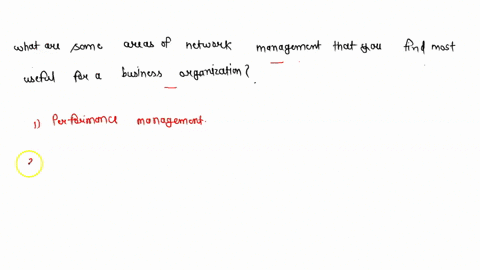 what are some areas of network management that you find most
useful for a business organization?
1) Performance management.
2